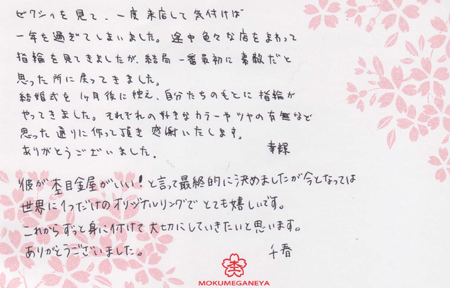 ゼクシィを見て、一度来店して気付けば
一年を過ぎてしまいました。途中色々な店をまわって
指輪を見てきましたが、結局一番最初に素敵だと
思った所に戻ってきました。
結婚式を1ヶ月後に控え、自分たちのもとに指輪が
やってきました。それぞれの好きなカラーやツヤの有無など
思った通りに作って頂き感謝いたします。
ありがとうございました。
彼が杢目金屋がいい!と言って最終的に決めましたが今となっては
世界に1つだけのオリジナルリングでとても嬉しいです。
これからずっと身に付けて大切にしていきたいと思います。
ありがとうございました。 千春
MOKUMEGANEYA